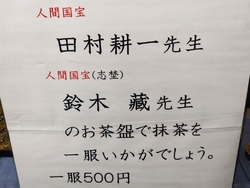 人間国宝
田村耕一先生
人間国宝(志埜)
鈴木 藏先生
のお茶盌で抹茶を
一服いかがでしょう。
一服500円